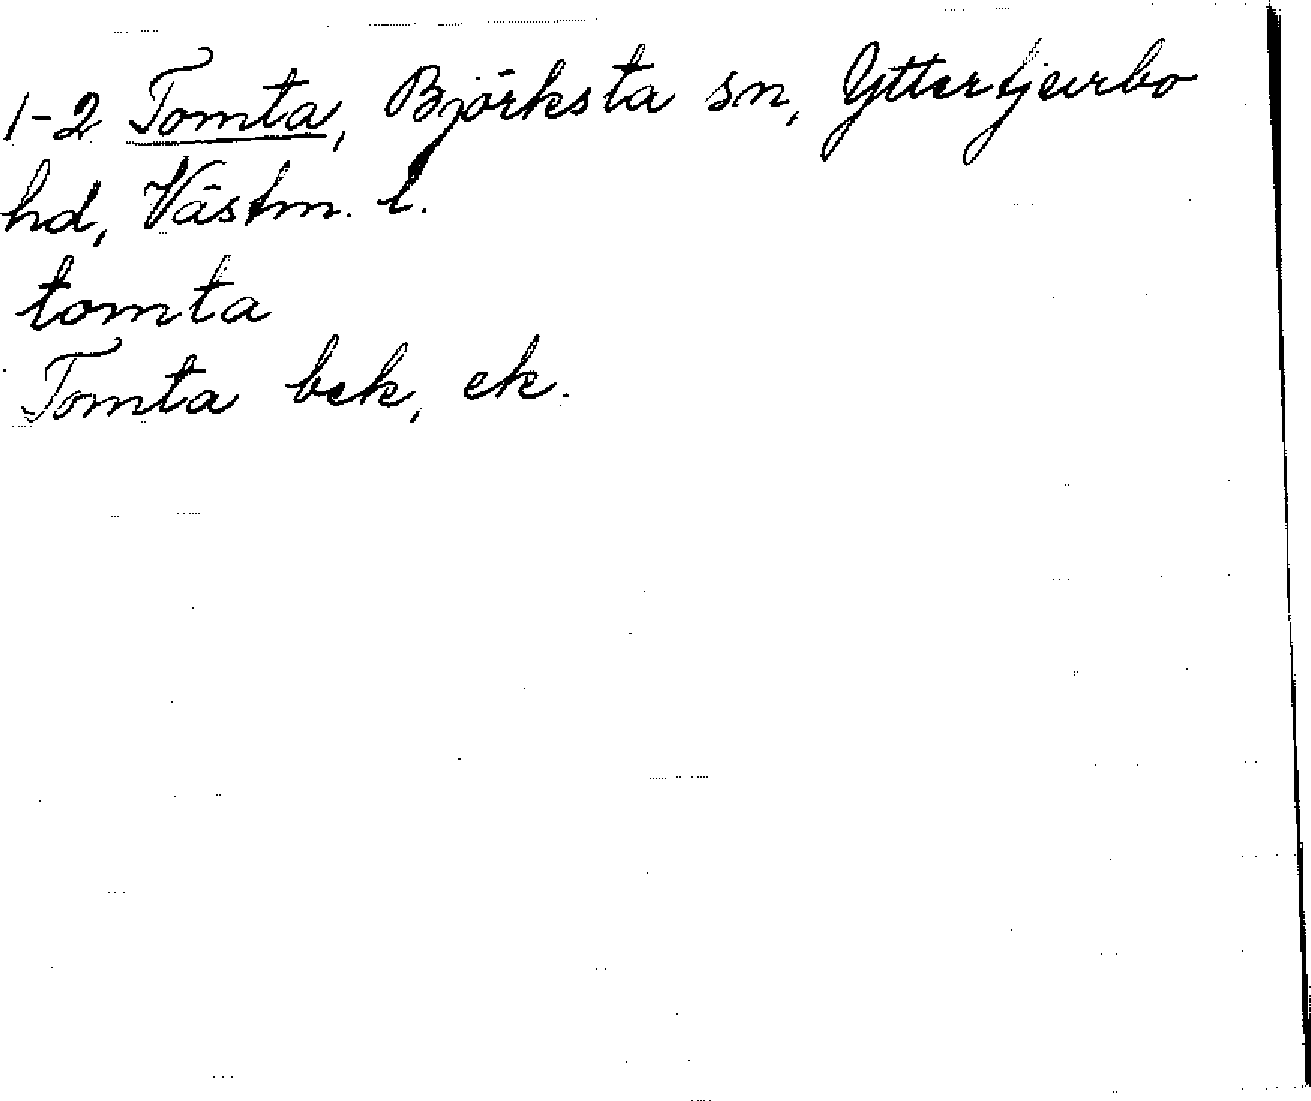 1-2 Tomta, Björksta sn, Yttertjurbo
hd, Västm. l.
tomta
Tomta bek, ek.